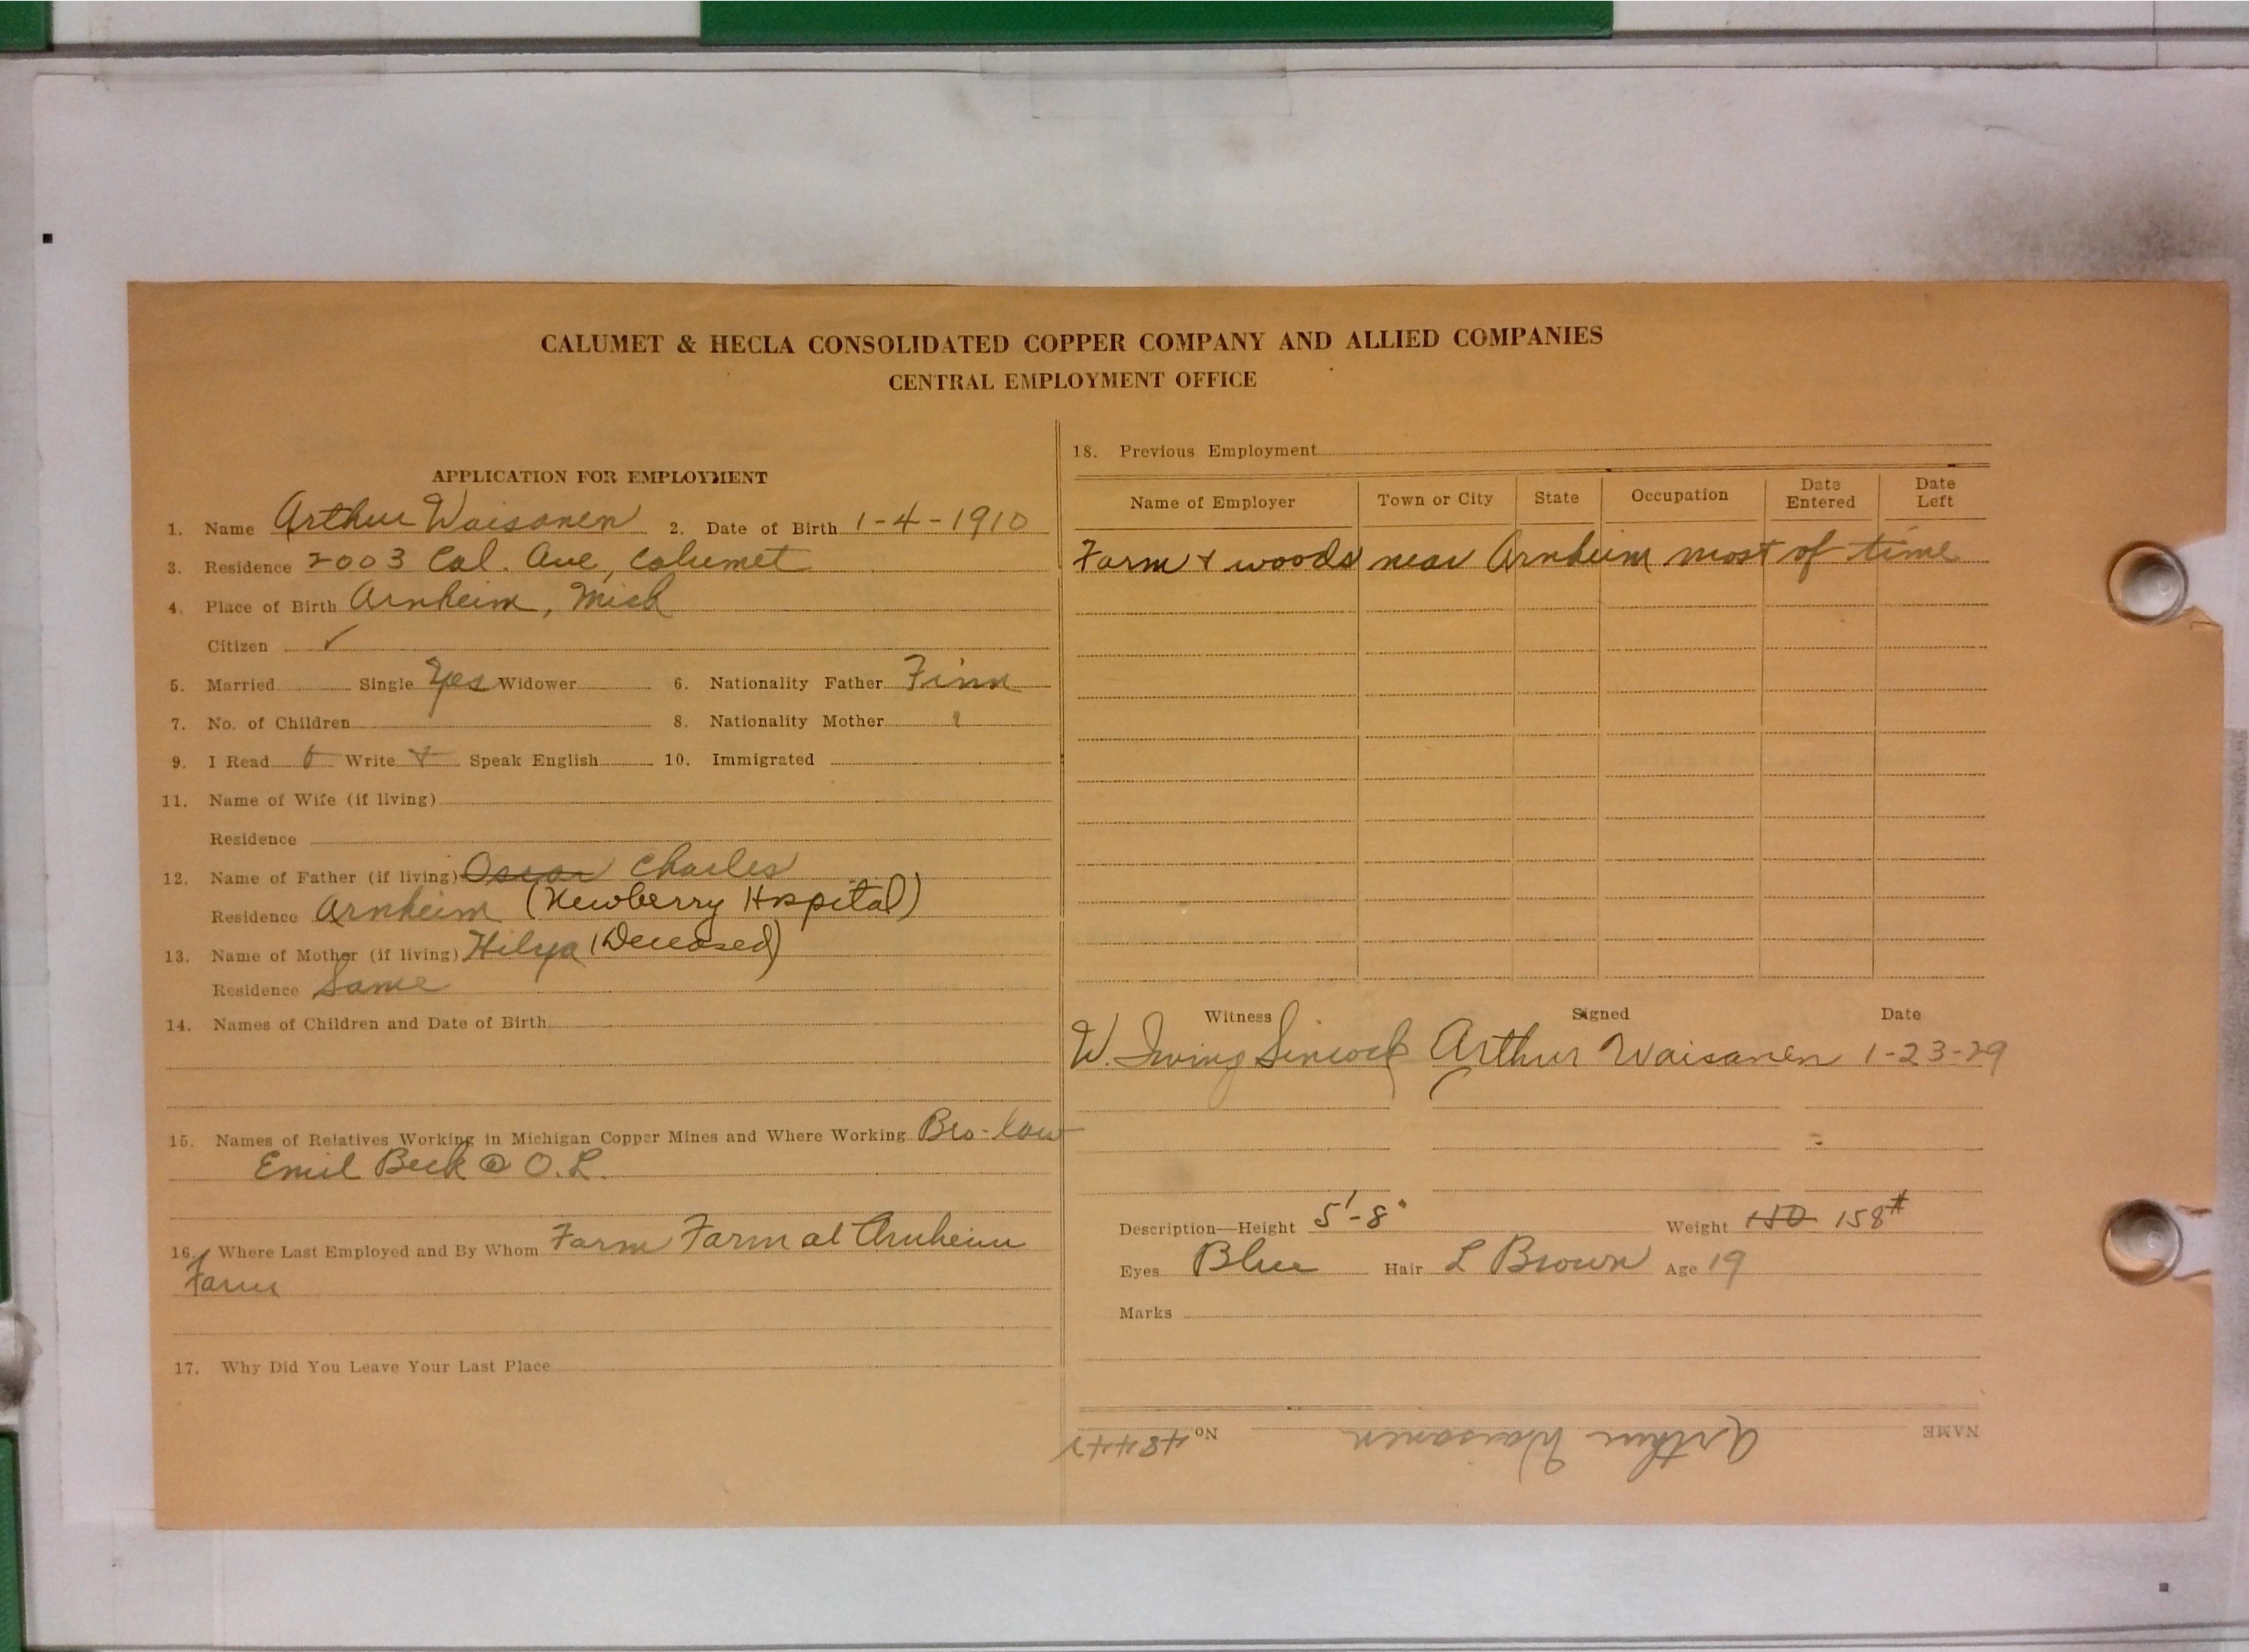 CALUMET & HECLA CONSOLIDATED COPPER COMPANY AND ALLIED COMPANIES
CENTRAL EMPLOYMENT OFFICE
APPLICATION FOR EMPLOYMENT
1. Name Arthur Waisanen 2. Date of Birth 1-4-1910
3. Residence 2003 Cal. Ave, Calumet
4. Place of Birth Arnheim, Mich
Citizen ✓
5. Married Single Yes Widower 6. Nationality Father Finn
7. No. of Children 8. Nationality Mother
9. I Read Write Speak English 10. Immigrated
11. Name of Wife (if living)
Residence
12. Name of Father (if living) Oscar Charles
Residence Arnheim (Newberry Hospital)
13. Name of Mother (if living) Hilya (Deceased)
Residence Same
14. Names of Children and Date of Birth
15. Names of Relatives Working in Michigan Copper Mines and Where Working Bro-law
Emil Beck @ O.L.
16. Where Last Employed and By Whom Farm Farm at Arnheim
Farm
17. Why Did You Leave Your Last Place
18. Previous Employment
Name of Employer Town or City State Occupation Date Entered Date Left
Farm + woods near Arnheim most of time
Witness Signed Date
W. Irving Sincock Arthur Waisanen 1-23-29
Description—Height 5'-8" Weight 150 158#
Eyes Blue Hair L Brown Age 19
Marks
NAME Arthur Waisanen No. 48442